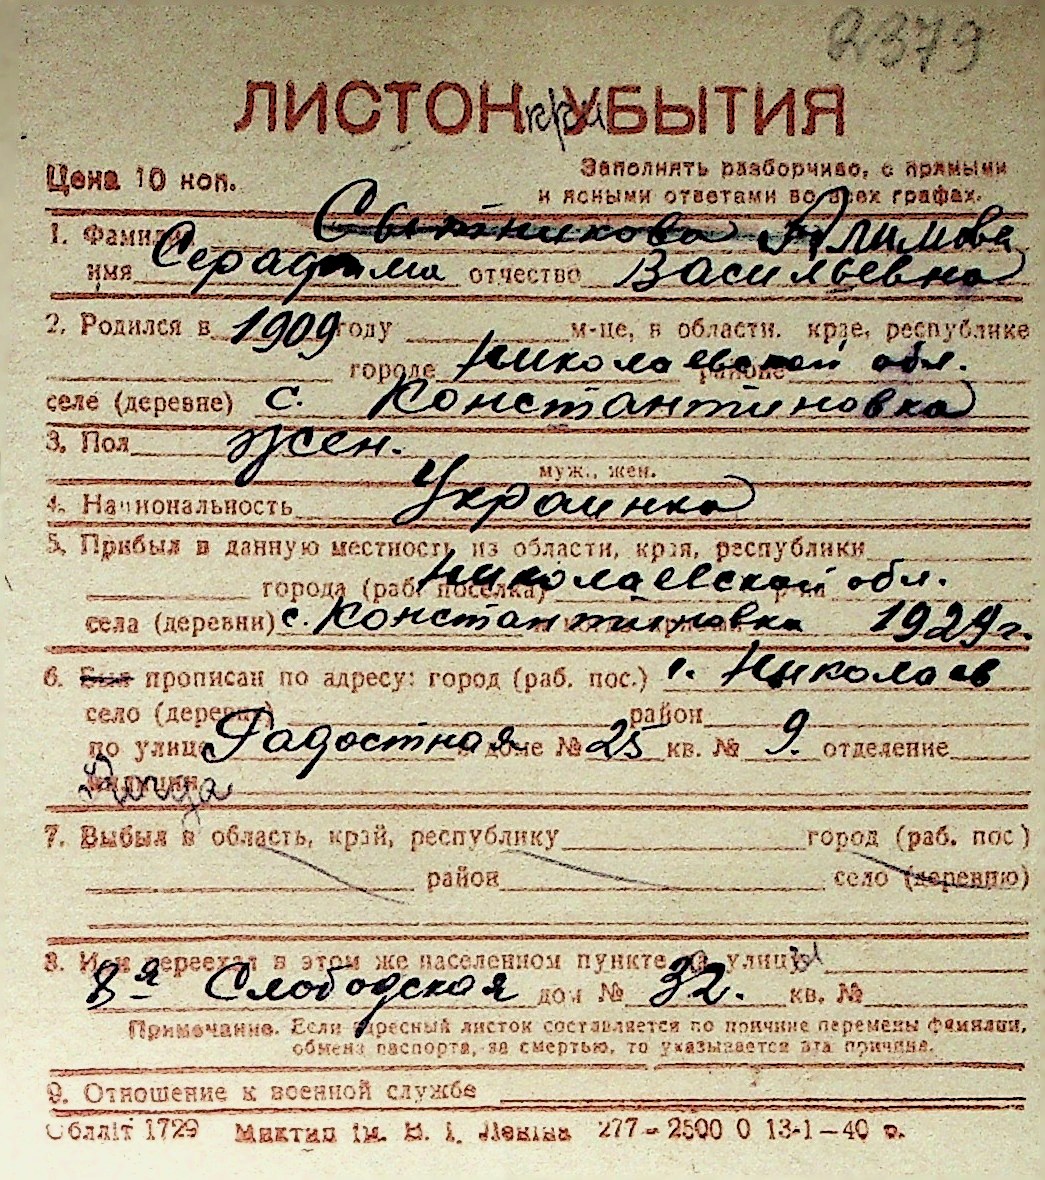 2379
ЛИСТОК при УБЫТИЯ
Цена 10 коп.
Заполнять разборчиво, с прямыми
и ясными ответами во всех графах.
1. Фамилия Сытникова Алимова
имя Серафима отчество Васильевна
2. Родился в 1909 году м-це, в области, крае, республике
городе Николаевской обл. районе
селе (деревне) с. Константиновка
3. Пол жен.
муж., жен.
4. Национальность Украинка
5. Прибыл в данную местность из области, края, республики
города (раб. поселка) Николаевской обл. р-на
села (деревни) с. Константиновка 1929 г.
6. Был прописан по адресу: город (раб. пос.) г. Николаев
село (деревня) район
по улице Радостная доме № 25 кв. № 9. отделение
милиции
7. Выбыл в область, край, республику город (раб. пос)
район село (деревню)
8. Или переехал в этом же населенном пункте улицы
8я Слободская дом № 32. кв. №
Примечание. Если адресный листок составляется по причине перемены фамилии,
обмена паспорта, за смертью, то указывается эта причина.
9. Отношение к военной службе
Облліт 1729 Миктип ім. В. І. Леніна 277–2500 0 13-1–40 р.